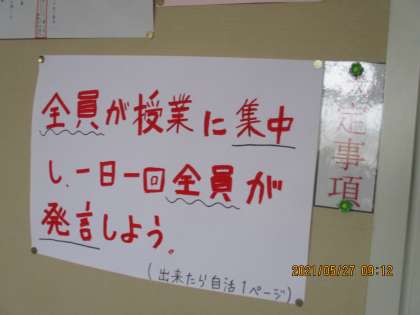 全員が授業に集中
し、一日一回全員が
発言しよう。
(出来たら自活1ページ)
定事項
2021/05/27 09:12